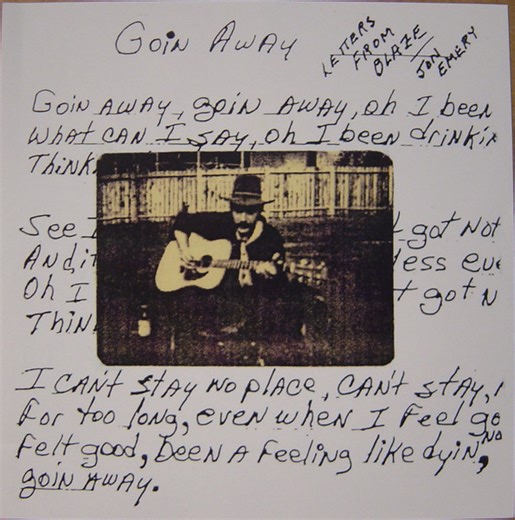 Goin Away
LETTERS
FROM
BLAZE
JON
EMERY
Goin AWAY, goin AWAY, oh I been
What CAN I SAY, oh I been drinkin
Think
See I got Not
And it less eve
Oh I t got N
Thin
I CAN'T stay no place, CAN'T stay,
For too long, even when I Feel go
Felt good, been A Feeling like dyin, No
goin AWAY.